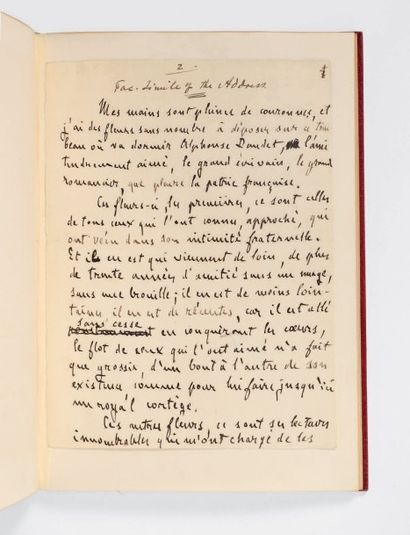 2.
Fac-Simile of the Address
Mes mains sont pleines de couronnes, et
j'ai des fleurs sans nombre à déposer sur ce tom
beau où va dormir Alphonse Daudet, l'ami
tendrement aimé, le grand écrivain, le grand
romancier, que pleure la patrie française.
Ces fleurs-ci, les premières, ce sont celles
de tous ceux qui l'ont connu, approché, qui
ont vécu dans son intimité fraternelle.
Et il en est qui viennent de loin, de plus
de trente années d'amitié sans un nuage,
sans une brouille; il en est de moins loin-
taines, il en est de récentes, car il est allé
sans cesse
en conquérant les cœurs,
le flot de ceux qui l'ont aimé n'a fait
que grossir, d'un bout à l'autre de son
existence comme pour lui faire, jusqu'ici
un royal cortège.
Ces autres fleurs, ce sont ses lecteurs
innombrables qui m'ont chargé de les